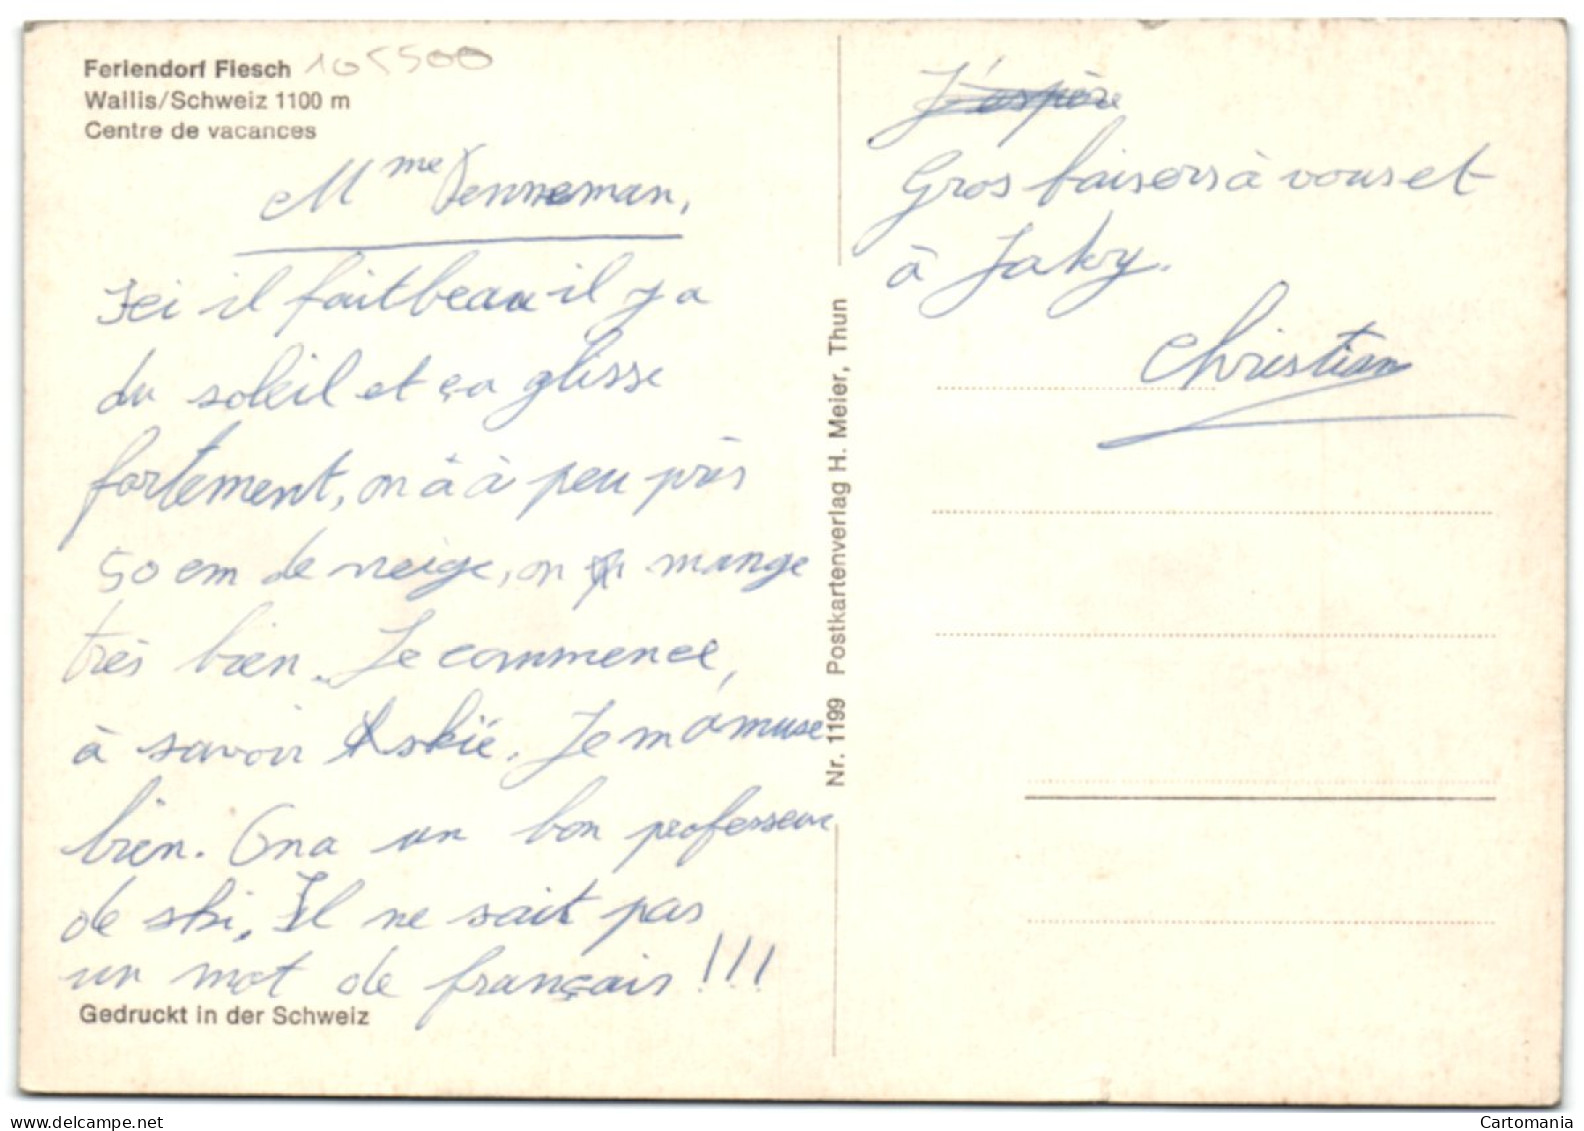 Feriendorf Fiesch 105500
Wallis/Schweiz 1100 m
Centre de vacances
Mme Venneman,
Ici il fait beau il y a
du soleil et ça glisse
fortement, on à à peu près
50 cm de neige, on mange
très bien. Je commence,
à savoir skië. Je m'amuse
bien. On a un bon professeur
de ski, Il ne sait pas
un mot de français !!!
Gedruckt in der Schweiz
Nr. 1199 Postkartenverlag H. Meier, Thun
J'espère
Gros baisers à vous et
à Jaky.
Christian
Cartomania